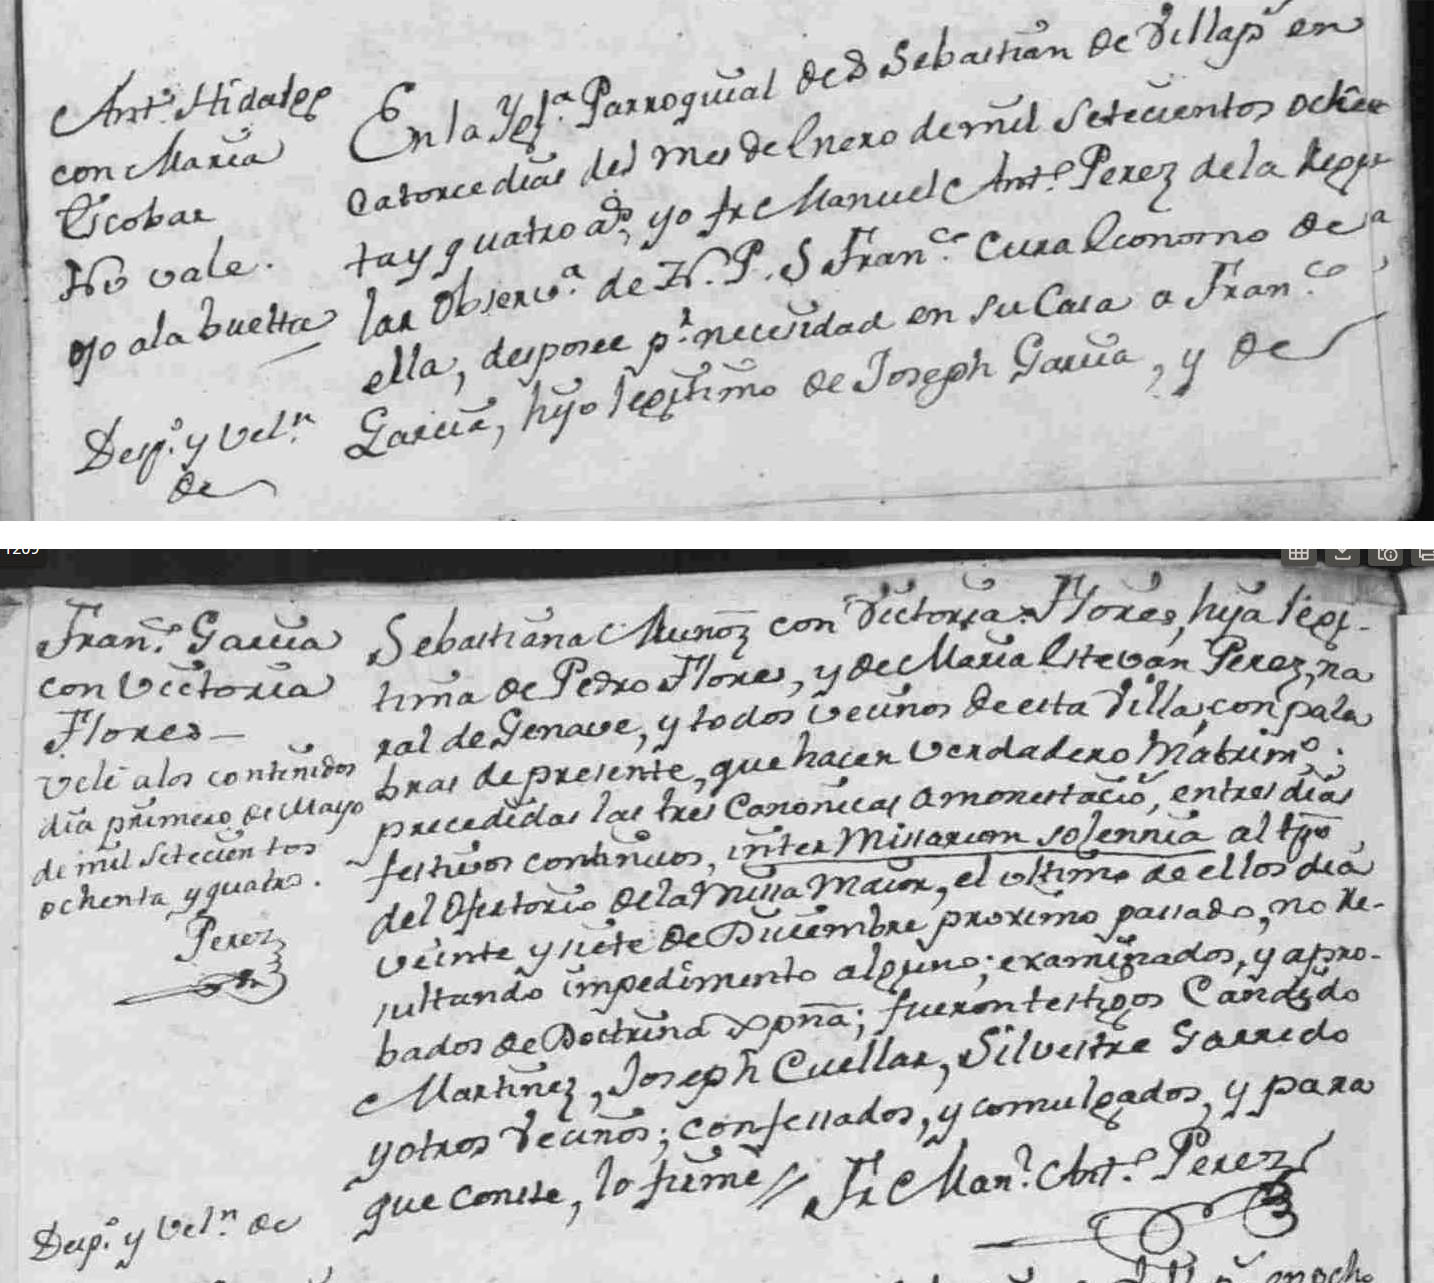 Ant.º Hidalgo
con Maria
Escobar
No vale.
ojo a la buelta
Desp.º y Vel.n
de
En la Ygl.ª Parroquial de S Sebastian de Villap.º en
catorce dias del mes de Enero de mil setecientos ochen
ta y quatro a.s, yo fr Manuel Ant.º Perez de la Regu
lar Observ.ª de N. P. S Fran.co Cura Economo de
ella, despose p.r necesidad en su Casa a Fran.co
Garcia, hijo legitimo de Joseph Garcia, y de
1209
Fran.co Garcia
con Victoria
Flores
velé a los contenidos
dia primero de Mayo
de mil setecientos
ochenta y quatro.
Perez
Desp.º y Vel.n de
Sebastiana Muñoz con Victoria Flores, hija legi-
tima de Pedro Flores, y de Maria Estevan Perez, na
ral de Genave, y todos vecinos de esta Villa, con pala
bras de presente, que hacen verdadero Matrim.º;
precedidas las tres Canonicas amonestació, en tres dias
festivos continuos, inter Missarum solennia al tpō
del Ofertorio de la Missa Maior, el ultimo de ellos dia
veinte y siete de Diciembre proximo passado, no re-
sultando impedimento alguno; examinados, y apro-
bados de Doctrina xpña; fueron testigos Candido
Martinez, Joseph Cuellar, Silvestre Garrido
y otros vecinos; confessados, y comulgados, y para
que conste, lo firmé // Fr Man.l Ant.º Perez